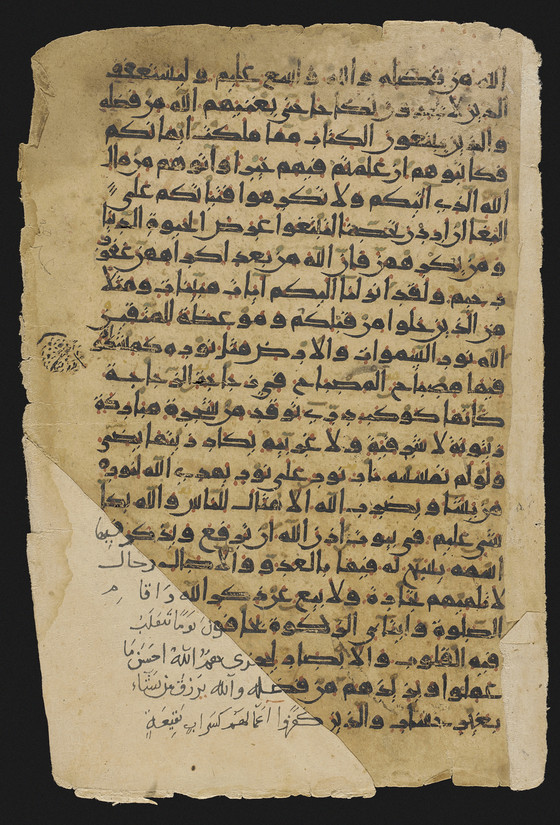 الله من فضله والله واسع عليم وليستعفف
الذين لا يجدون نكاحا حتى يغنيهم الله من فضله
والذين يبتغون الكتاب مما ملكت ايمانكم
فكاتبوهم ان علمتم فيهم خيرا واتوهم من مال
الله الذي اتيكم ولا تكرهوا فتياتكم على
البغا ان اردن تحصنا لتبتغوا عرض الحيوة الدنيا
ومن يكرههن فان الله من بعد اكراههن غفور
رحيم ولقد انزلنا اليكم ايات مبينات ومثلا
من الذين خلوا من قبلكم وموعظة للمتقين
الله نور السموات والارض مثل نوره كمشكوة
فيها مصباح المصباح في زجاجة الزجاجة
كانها كوكب دري توقد من شجرة مباركة
زيتونة لا شرقية ولا غربية يكاد زيتها يضي
ولو لم تمسسه نار نور على نور يهدي الله لنوره
من يشا ويضرب الله الامثال للناس والله بكل
شي عليم في بيوت اذن الله ان ترفع ويذكر فيها
اسمه يسبح له فيها بالغدو والاصال رجال
لا تلهيهم تجارة ولا بيع عن ذكر الله واقام
الصلوة وايتاي الزكوة يخافون يوما تتقلب
فيه القلوب والابصار ليجزيهم الله احسن ما
عملوا ويزيدهم من فضله والله يرزق من يشاء
بغير حساب والذين كفروا اعمالهم كسراب بقيعة